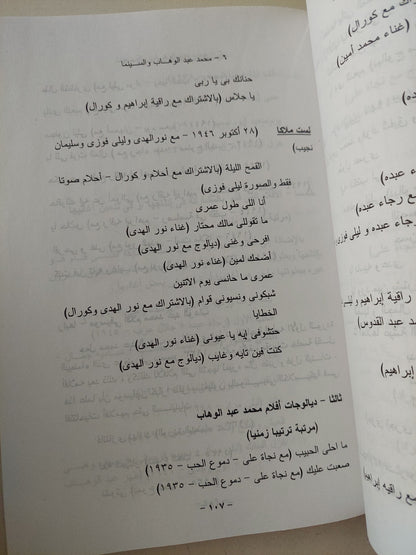 ٦ - محمد عبد الوهاب والسينما
حنانك بى يا ربى
يا جلاس (بالاشتراك مع راقية إبراهيم و كورال)
لست ملاكا (٢٨ أكتوبر ١٩٤٦ - مع نورالهدى وليلى فوزى وسليمان
نجيب)
القمح الليلة (بالاشتراك مع أحلام و كورال - أحلام صوتا
فقط والصورة ليلى فوزى)
أنا اللى طول عمرى
ما تقوللى مالك محتار (غناء نور الهدى)
افرحى وغنى (ديالوج مع نور الهدى)
أضحك لمين (غناء نور الهدى)
عمرى ما حانسى يوم الاتنين
شبكونى ونسيونى قوام (بالاشتراك مع نور الهدى وكورال)
الخطايا
حتشوفى إيه يا عيونى (غناء نور الهدى)
كنت فين تايه وغايب (ديالوج مع نور الهدى)
ثالثا - ديالوجات أفلام محمد عبد الوهاب
(مرتبة ترتيبا زمنيا)
ما احلى الحبيب (مع نجاة على - دموع الحب - ١٩٣٥)
صعبت عليك (مع نجاة على - دموع الحب - ١٩٣٥)
- ١٠٧ -
مع كورال)
(غناء محمد أمين)
عبده)
مع رجاء عبده)
عبده و ليلى فوزى
راقية إبراهيم و
مد عبد القدوس)
إبراهيم)
مع راقيه إبراهيم